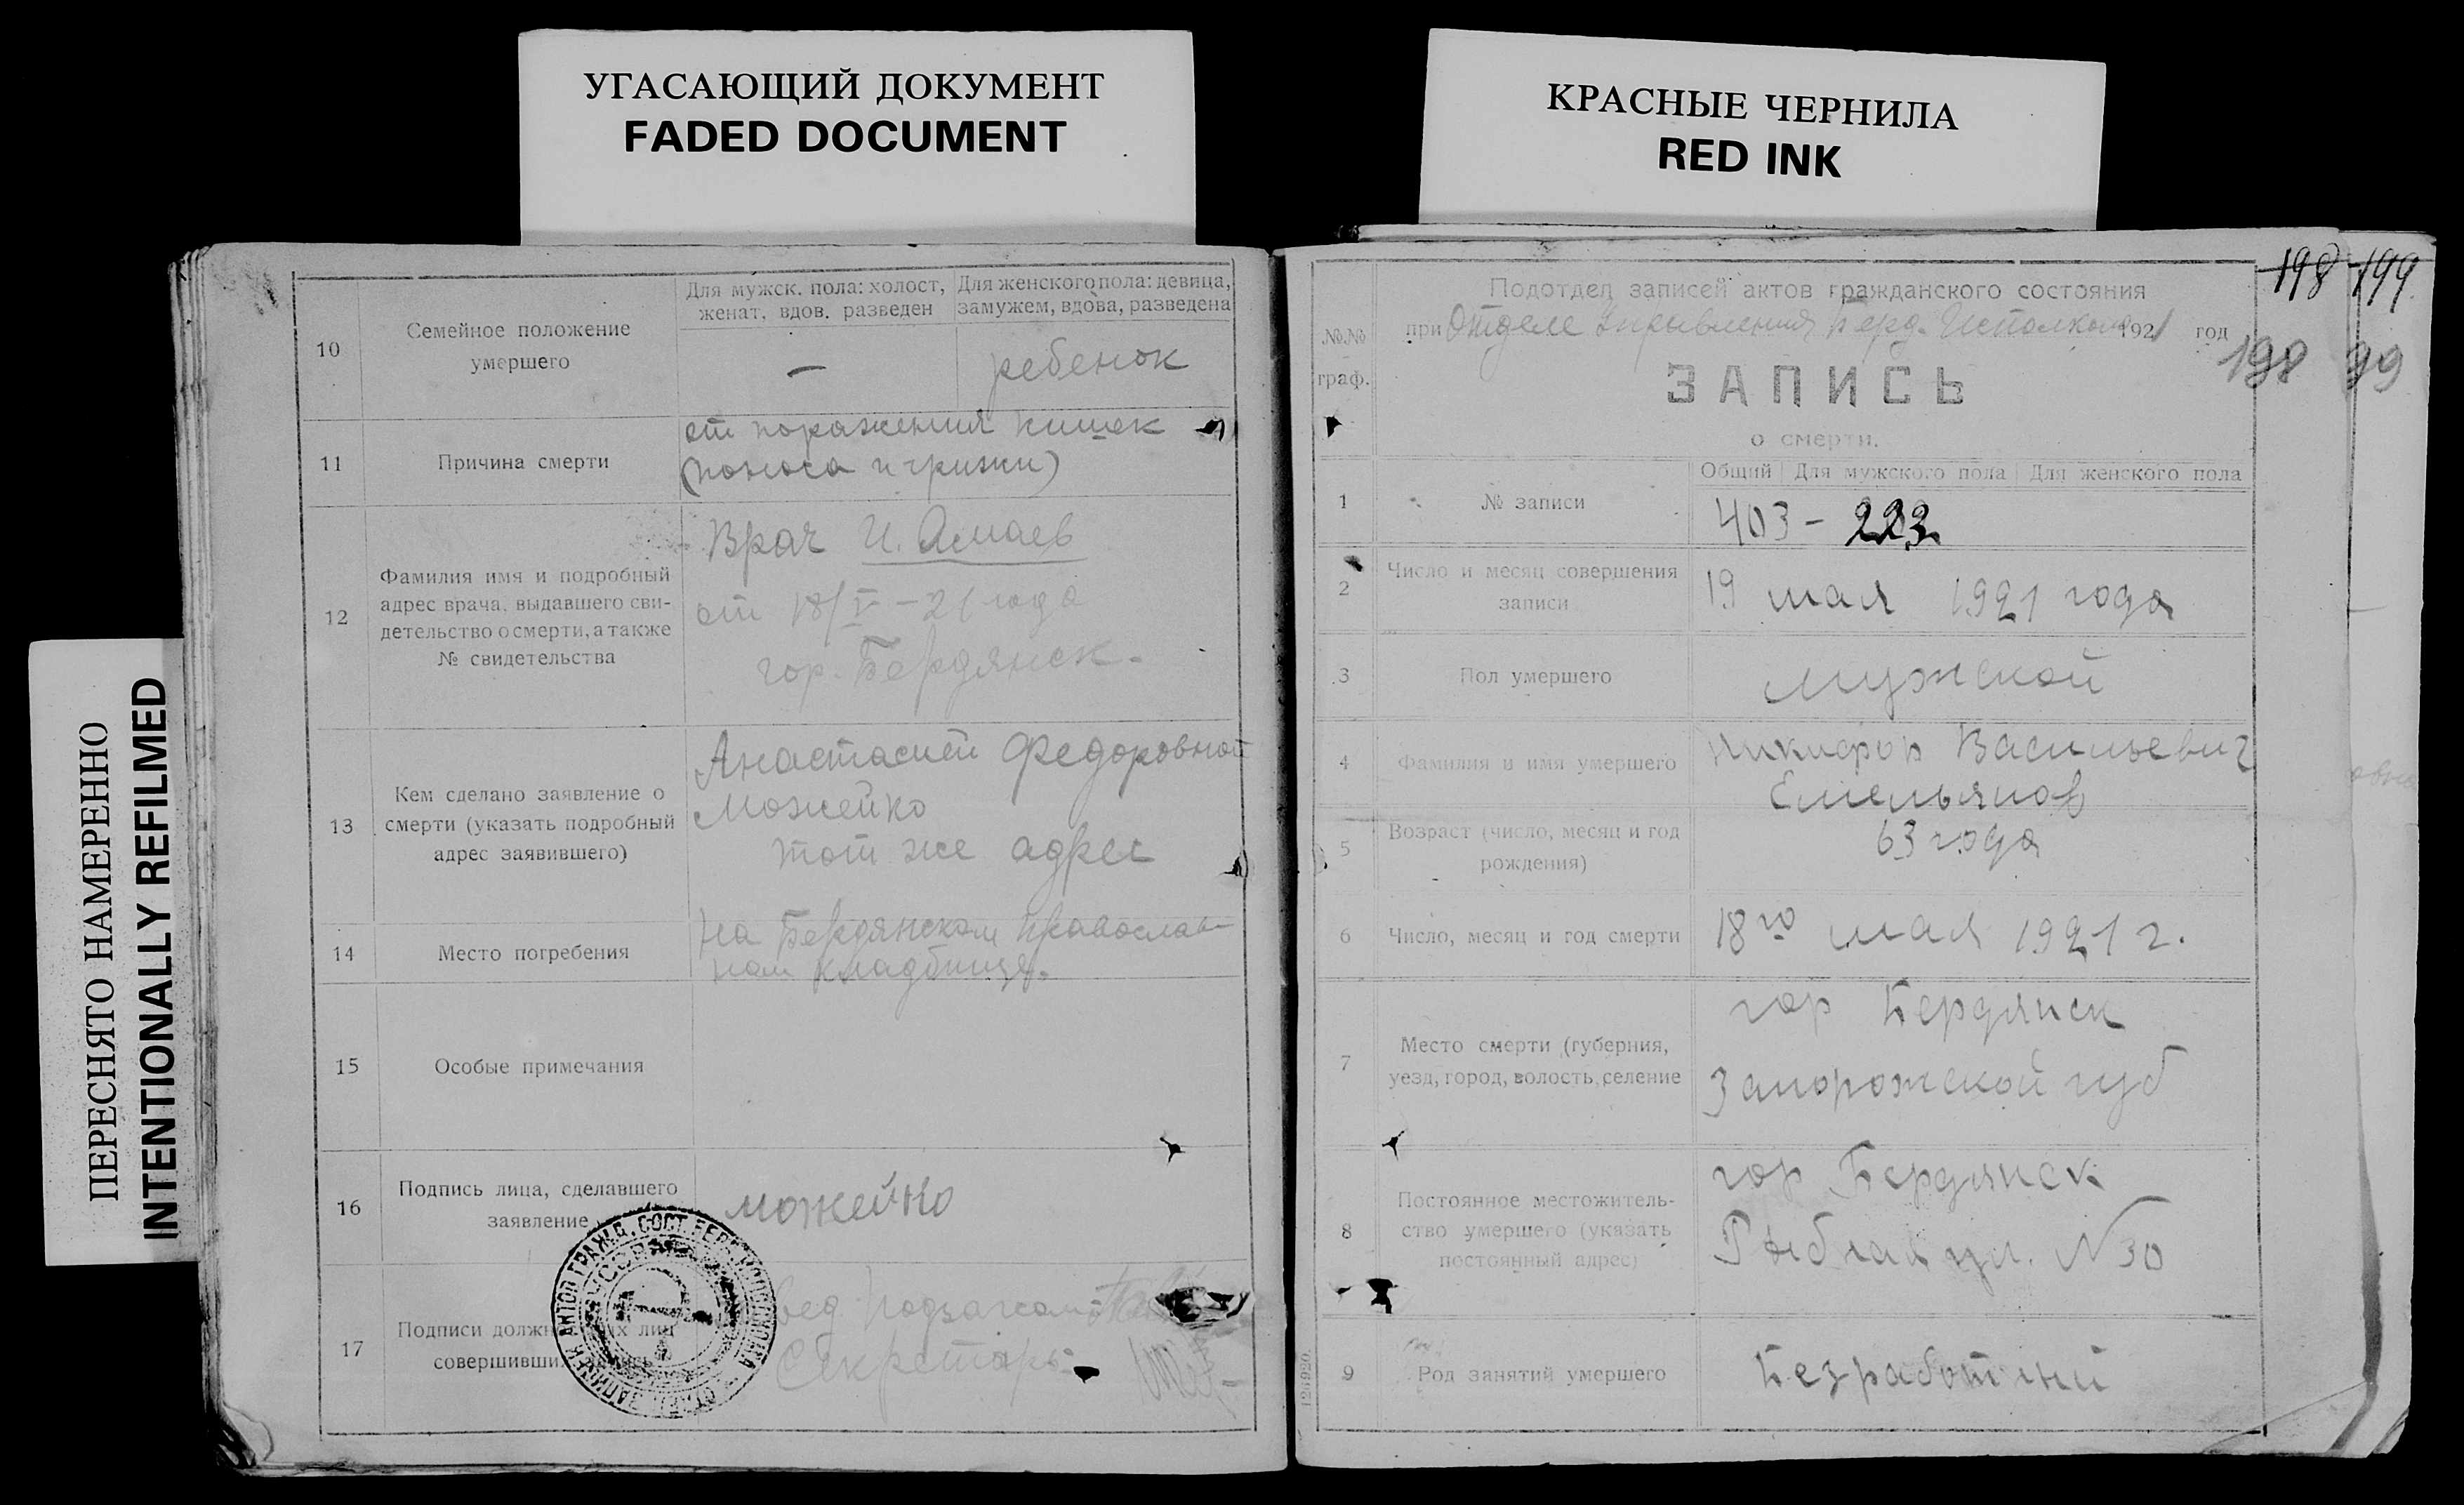 УГАСАЮЩИЙ ДОКУМЕНТ
FADED DOCUMENT
КРАСНЫЕ ЧЕРНИЛА
RED INK
ПЕРЕСНЯТО НАМЕРЕННО
INTENTIONALLY REFILMED
10
Семейное положение
умершего
Для мужск. пола: холост,
женат, вдов. разведен
Для женского пола: девица,
замужем, вдова, разведена
—
ребенок
11
Причина смерти
от поражения кишек
(поноса и грижи)
12
Фамилия имя и подробный
адрес врача, выдавшего сви-
детельство о смерти, а также
№ свидетельства
Врач И.
от 18/V – 21 года
гор. Бердянск.
13
Кем сделано заявление о
смерти (указать подробный
адрес заявившего)
Анастасией Федоровной
Можейко
тот же адрес
14
Место погребения
На Бердянском православ-
ном кладбище.
15
Особые примечания
16
Подпись лица, сделавшего
заявление
можейко
17
Подписи должн х лиц
совершивши
Секретарь
198 199
198 99
№№
граф.
Подотдел записей актов гражданского состояния
при Отделе Управления Берд. Исполкома 1921 год
ЗАПИСЬ
о смерти.
1
№ записи
Общий Для мужского пола Для женского пола
403 – 223
2
Число и месяц совершения
записи
19 мая 1921 года
3
Пол умершего
мужской
4
Фамилия и имя умершего
Никифор Васильевич
Емельянов
5
Возраст (число, месяц и год
рождения)
63 года
6
Число, месяц и год смерти
18го мая 1921 г.
7
Место смерти (губерния,
уезд, город, волость, селение
гор Бердянск
Запорожской губ
8
Постоянное местожитель-
ство умершего (указать
постоянный адрес)
гор Бердянск
Рыбная ул. N 30
9
Род занятий умершего
Безработный